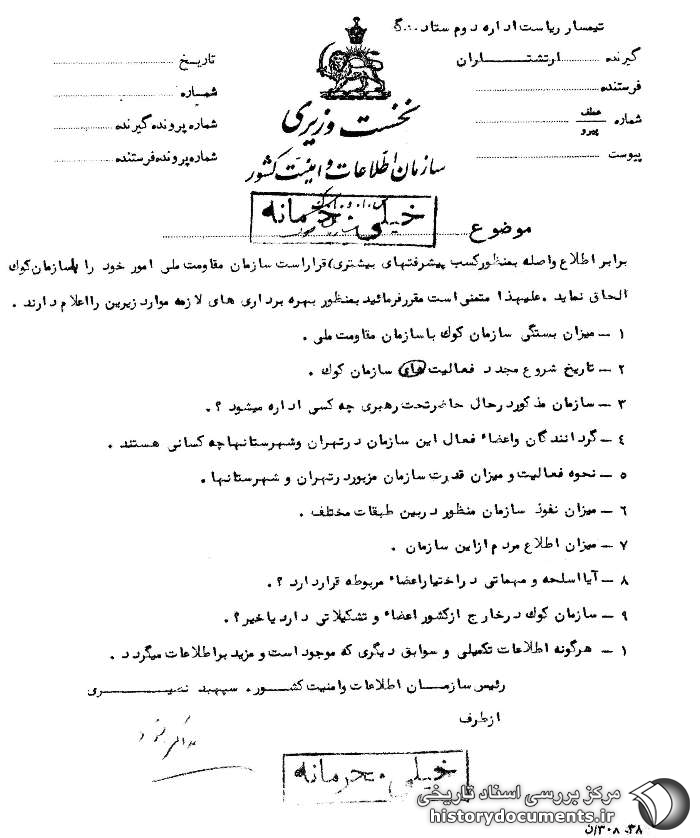 تیمسار ریاست اداره دوم ستاد بزرگ
گیرنده ارتشتاران
فرستنده
شماره عطف پیرو
پیوست
نخست وزیری
سازمان اطلاعات و امنیت کشور
تاریخ
شماره
شماره پرونده گیرنده
شماره پرونده فرستنده
خیلی محرمانه
موضوع
برابر اطلاع واصله بمنظور کسب پیشرفتهای بیشتری قرار است سازمان مقاومت ملی امور خود را با سازمان کوک
الحاق نماید . علیهذا متمنی است مقرر فرمائید بمنظور بهره برداری های لازمه موارد زیرین را اعلام دارند .
۱ – میزان بستگی سازمان کوک با سازمان مقاومت ملی .
۲ – تاریخ شروع مجدد فعالیت های سازمان کوک .
۳ – سازمان مذکور در حال حاضر تحت رهبری چه کسی اداره میشود ؟ .
٤ – گردانندگان و اعضاء فعال این سازمان در تهران و شهرستانها چه کسانی هستند .
۵ – نحوه فعالیت و میزان قدرت سازمان مزبور در تهران و شهرستانها .
۶ – میزان نفوذ سازمان منظور در بین طبقات مختلف .
۷ – میزان اطلاع مردم از این سازمان .
۸ – آیا اسلحه و مهماتی در اختیار اعضاء مربوطه قرار دارد ؟ .
۹ – سازمان کوک در خارج از کشور اعضاء و تشکیلاتی دارد یا خیر ؟ .
۱ – هرگونه اطلاعات تکمیلی و سوابق دیگری که موجود است و مزید بر اطلاعات میگردد .
رئیس سازمان اطلاعات و امنیت کشور . سپهبد نصیری
از طرف
خیلی محرمانه
مرکز بررسی اسناد تاریخی
historydocuments.ir